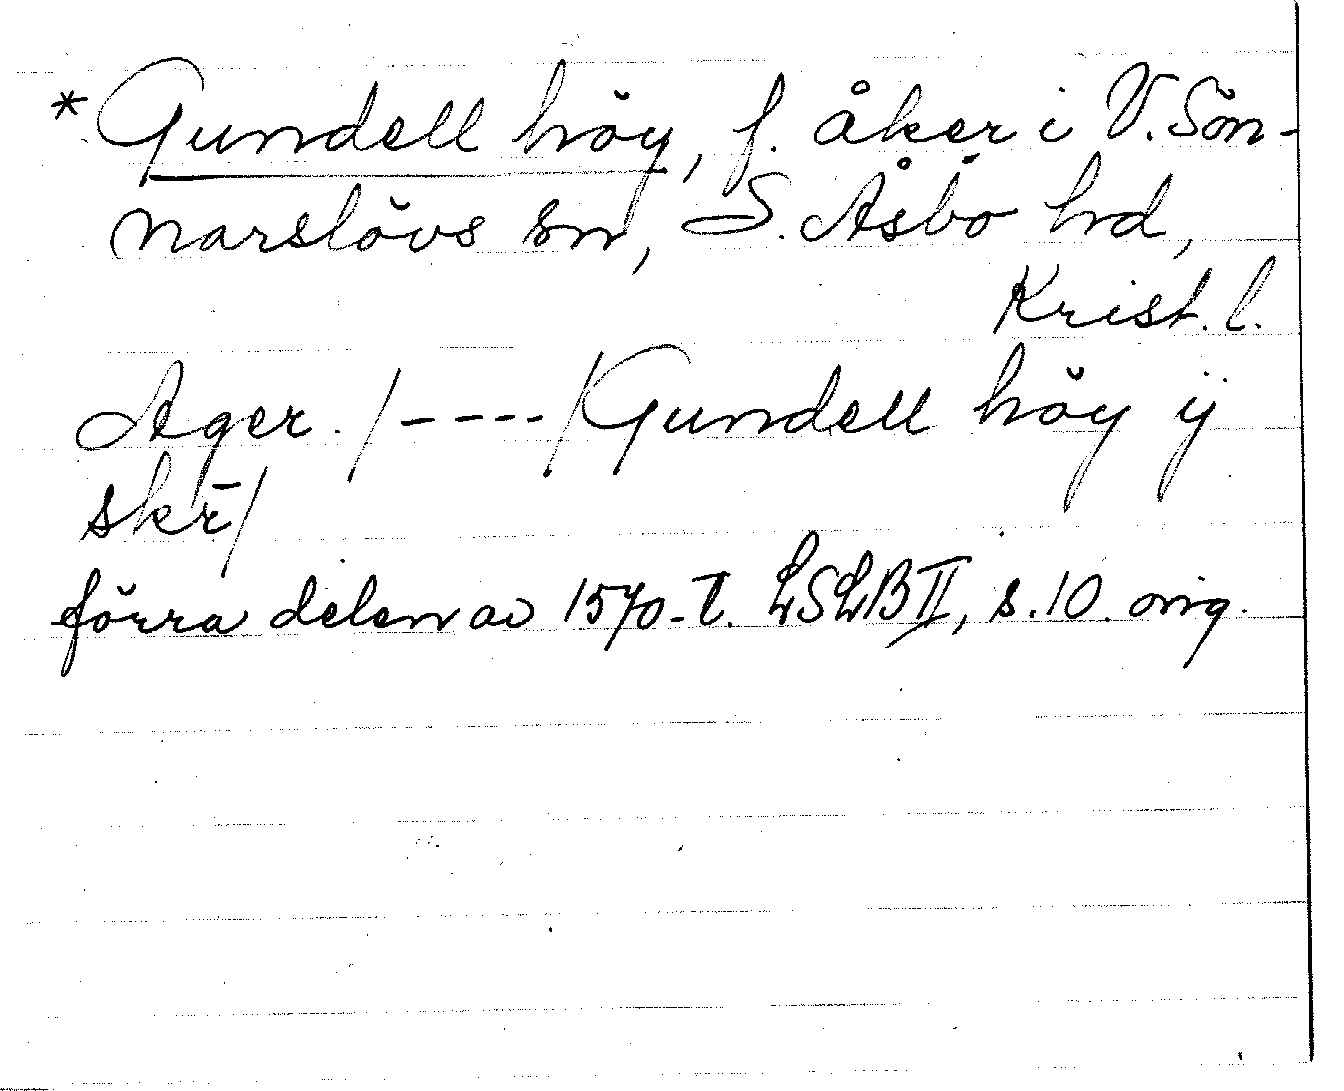 *Gundell höy, f. åker i V. Sön-
narslövs sn, S. Åsbo hd,
Krist. l.
Ager. /----/ Gundell höy ij
skr̄/
förra delen av 1570-t. LSLB II, s. 10. orig.